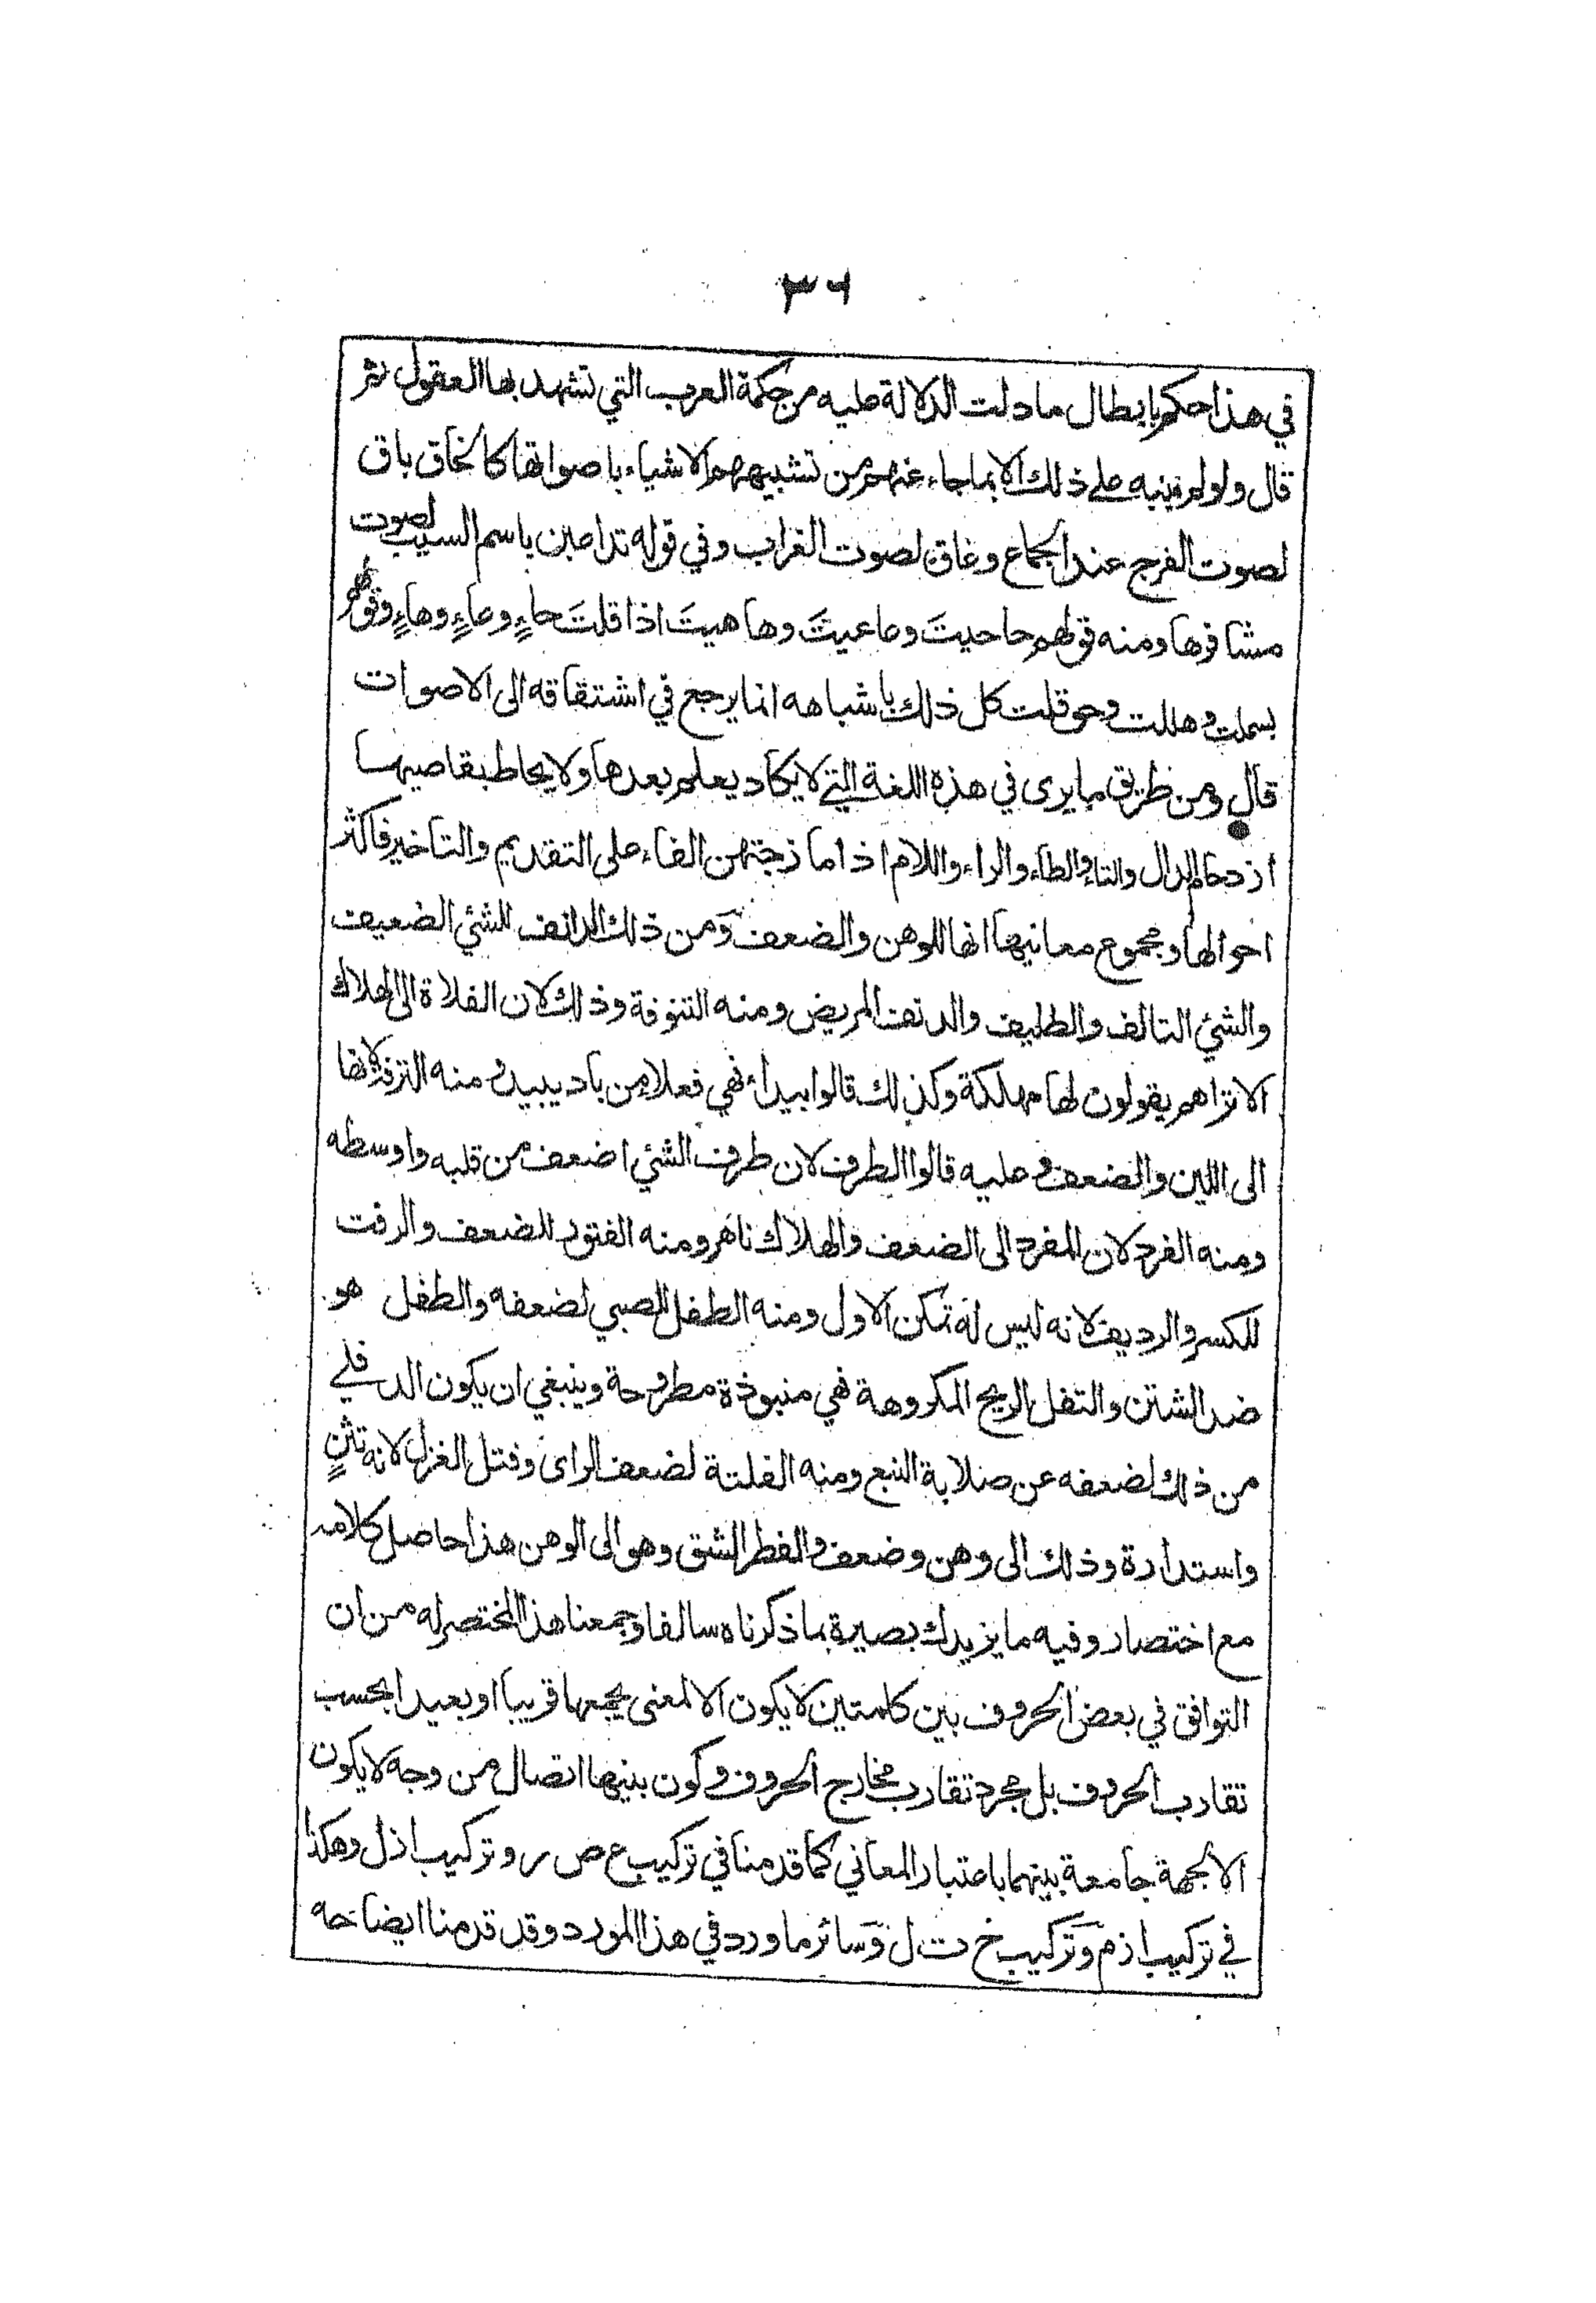 ٣٦
في هذا حكم بابطال ما دلت الدلالة عليه من حكمة العرب التي تشهد بها العقول ثم
قال ولو لم ينبه على ذلك الا بما جاء عنهم من تشبيههم الاشياء باصواتها كالخاق باق
لصوت الفرج عند الجماع وغاق لصوت الغراب وفي قوله تداعين باسم السيب لصوت
مشافرها ومنه قولهم حاحيتَ وعاعيتَ وهاهيتَ اذا قلتَ حاءٍ وعاءٍ وهاءٍ وقولهم
بسملت وهللت وحوقلت كل ذلك باشباهه انما يرجع في اشتقاقه الى الاصوات
قال ومن طريق ما يرى في هذه اللغة التي لا يكاد يعلم بعدها ولا يحاط بقاصيها
ازدحام الدال والتاء والطاء والراء واللام اذا مازجتهن الفاء على التقديم والتاخير فاكثر
احوالها ومجموع معانيها انها للوهن والضعف ومن ذلك الدانف للشئ الضعيف
والشئ التالف والطليف والدنف المريض ومنه التنوفة وذلك لان الفلاة الى الهلاك
الا تراهم يقولون لها مهلكة وكذلك قالوا بيداء فهي فعلاء من باد يبيد ومنه الترفة لانها
الى اللين والضعف وعليه قالوا الطرف لان طرف الشئ اضعف من قلبه واوسطه
ومنه الفرد لان المفرد الى الضعف والهلاك ناهر ومنه الفتور للضعف والرفت
للكسر والرديف لانه ليس له تمكن الاول ومنه الطفل للصبي لضعفه والطفل هو
ضد الشثن والتفل الريح المكروهة فهي منبوذة مطروحة وينبغي ان يكون الدفلى
من ذلك لضعفه عن صلابة النبع ومنه الفلتة لضعف الراى وفتل الغزل لانه تثنٍ
واستدارة وذلك الى وهن وضعف والفطر الشق وهو الى الوهن هذا حاصل كلامه
مع اختصار وفيه ما يزيدك بصيرة بما ذكرناه سالفا وجمعنا هذا المختصر له من ان
التوافق في بعض الحروف بين كلمتين لا يكون الا لمعنى يجمعها قريبا او بعيدا بحسب
تقارب الحروف بل مجرد تقارب مخارج الحروف وكون بينها اتصال من وجه لا يكون
الا لجهة جامعة بينهما باعتبار المعاني كما قدمنا في تركيب ع ص ر وتركيب ا ز ل وهكذا
في تركيب ا ز م وتركيب خ ت ل وسائر ما ورد في هذا المورد وقد قدمنا ايضاحه